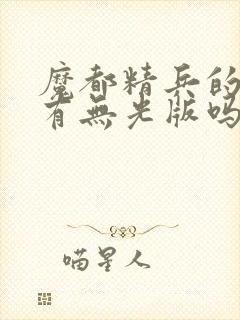 魔都精兵的
有無光版吗
喵星人